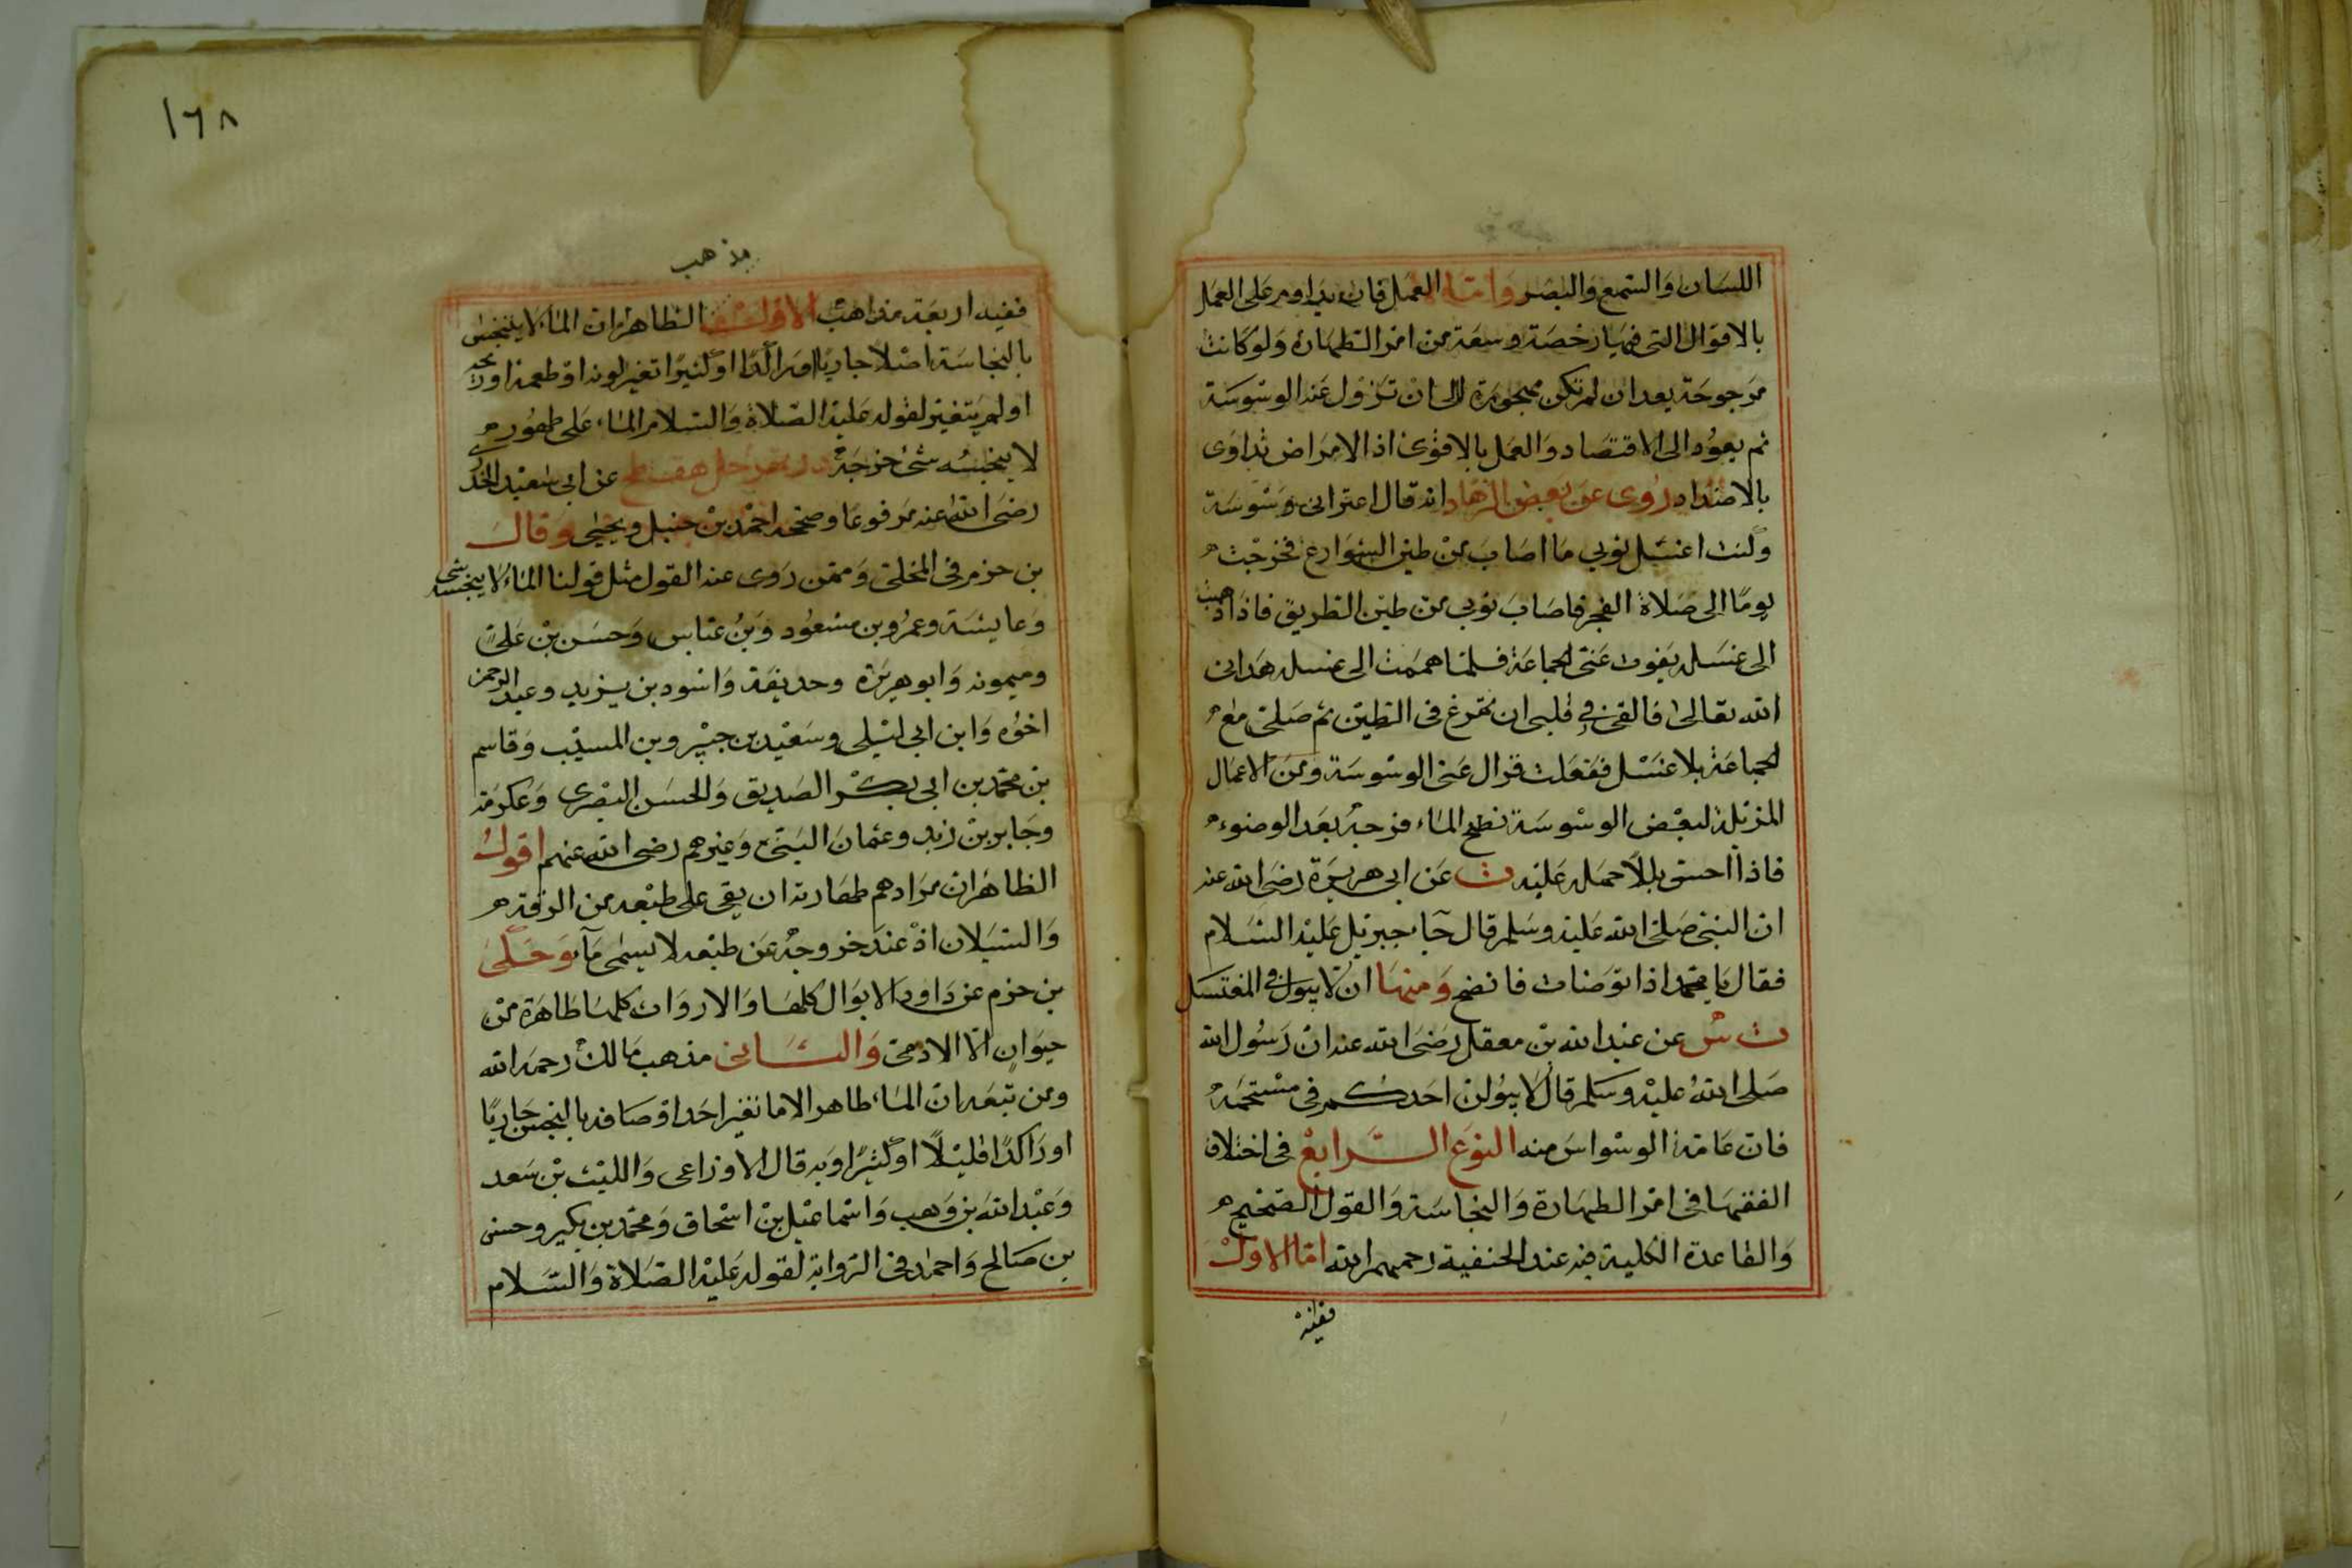 اللسان والسمع والبصر واما العمل فان يداوم على العمل
بالاقوال التى فيها رخصة وسعة من امر الطهارة ولو كانت
مرجوحة بعد ان لم تكن مهجورة الى ان تزول عنه الوسوسة
ثم يعود الى الاقتصاد والعمل بالاقوى اذ الامراض تداوى
بالاضداد روى عن بعض الزهاد انه قال اعترانى وسوسة
وكنت اغسل ثوبى ما اصاب من طين الشوارع فخرجت
يوما الى صلاة الفجر فاصاب ثوبى من طين الطريق فاذا ذهبت
الى غسله يفوت عنى الجماعة فلما هممت الى غسله هدانى
الله تعالى فالقى فى قلبى ان تمرغ فى الطين ثم صلى مع
الجماعة بلا غسل ففعلت فزال عنى الوسوسة ومن الاعمال
المزيلة لبعض الوسوسة نضح الماء فرجه بعد الوضوء
فاذا احس بللا حمله عليه ت عن ابى هريرة رضى الله عنه
ان النبى صلى الله عليه وسلم قال جاء جبريل عليه السلام
فقال يا محمد اذا توضات فانضح ومنها ان لا يبول فى المغتسل
ت س عن عبد الله بن معقل رضى الله عنه ان رسول الله
صلى الله عليه وسلم قال لا يبولن احدكم فى مستحمه
فان عامة الوسواس منه النوع الرابع فى اختلاف
الفقها فى امر الطهارة والنجاسة والقول الصحيح
والقاعدة الكلية فيه عند الحنفية رحمهم الله اما الاول
ففيه
١٦٨
مذهب
ففيه اربعة مذاهب الاول الظاهر ان الماء لا ينجس
بالنجاسة اصلا جاريا او راكدا او كثيرا تغير لونه او طعمه او ريحه
او لم يتغير لقوله عليه الصلاة والسلام الماء على طهوره
لا ينجسه شئ خرجه عن ابى سعيد الخدرى
رضى الله عنه مرفوعا وصححه احمد بن حنبل ويحيى وقال
بن حزم فى المحلى وممن روى عنه القول مثل قولنا الماء لا ينجسه شئ
وعايشة وعمر وبن مسعود وبن عباس وحسن بن على
وميمونه وابو هريرة وحديفة واسود بن يزيد وعبد الرحمن
اخوه وابن ابى ليلى وسعيد بن جبير وبن المسيب وقاسم
بن محمد بن ابى بكر الصديق والحسن البصرى وعكرمة
وجابر بن زيد وعثمان البتى وغيرهم رضى الله عنهم اقول
الظاهر ان مرادهم طهارته ان بقى على طبعه من الرقة
والسيلان اذ عند خروجه عن طبعه لا يسمى ماء وحكى
بن حزم عن داود الابوال كلها والارواث كلها طاهرة من
حيوان الا الادمى والثانى مذهب مالك رحمه الله
ومن تبعه ان الماء طاهر الا ما تغير احد اوصافه بالنجس جاريا
او راكدا قليلا او كثيرا وبه قال الاوزاعى والليث بن سعد
وعبد الله بن وهب واسماعيل بن اسحاق ومحمد بن بكير وحسن
بن صالح واحمد فى الرواية لقوله عليه الصلاة والسلام